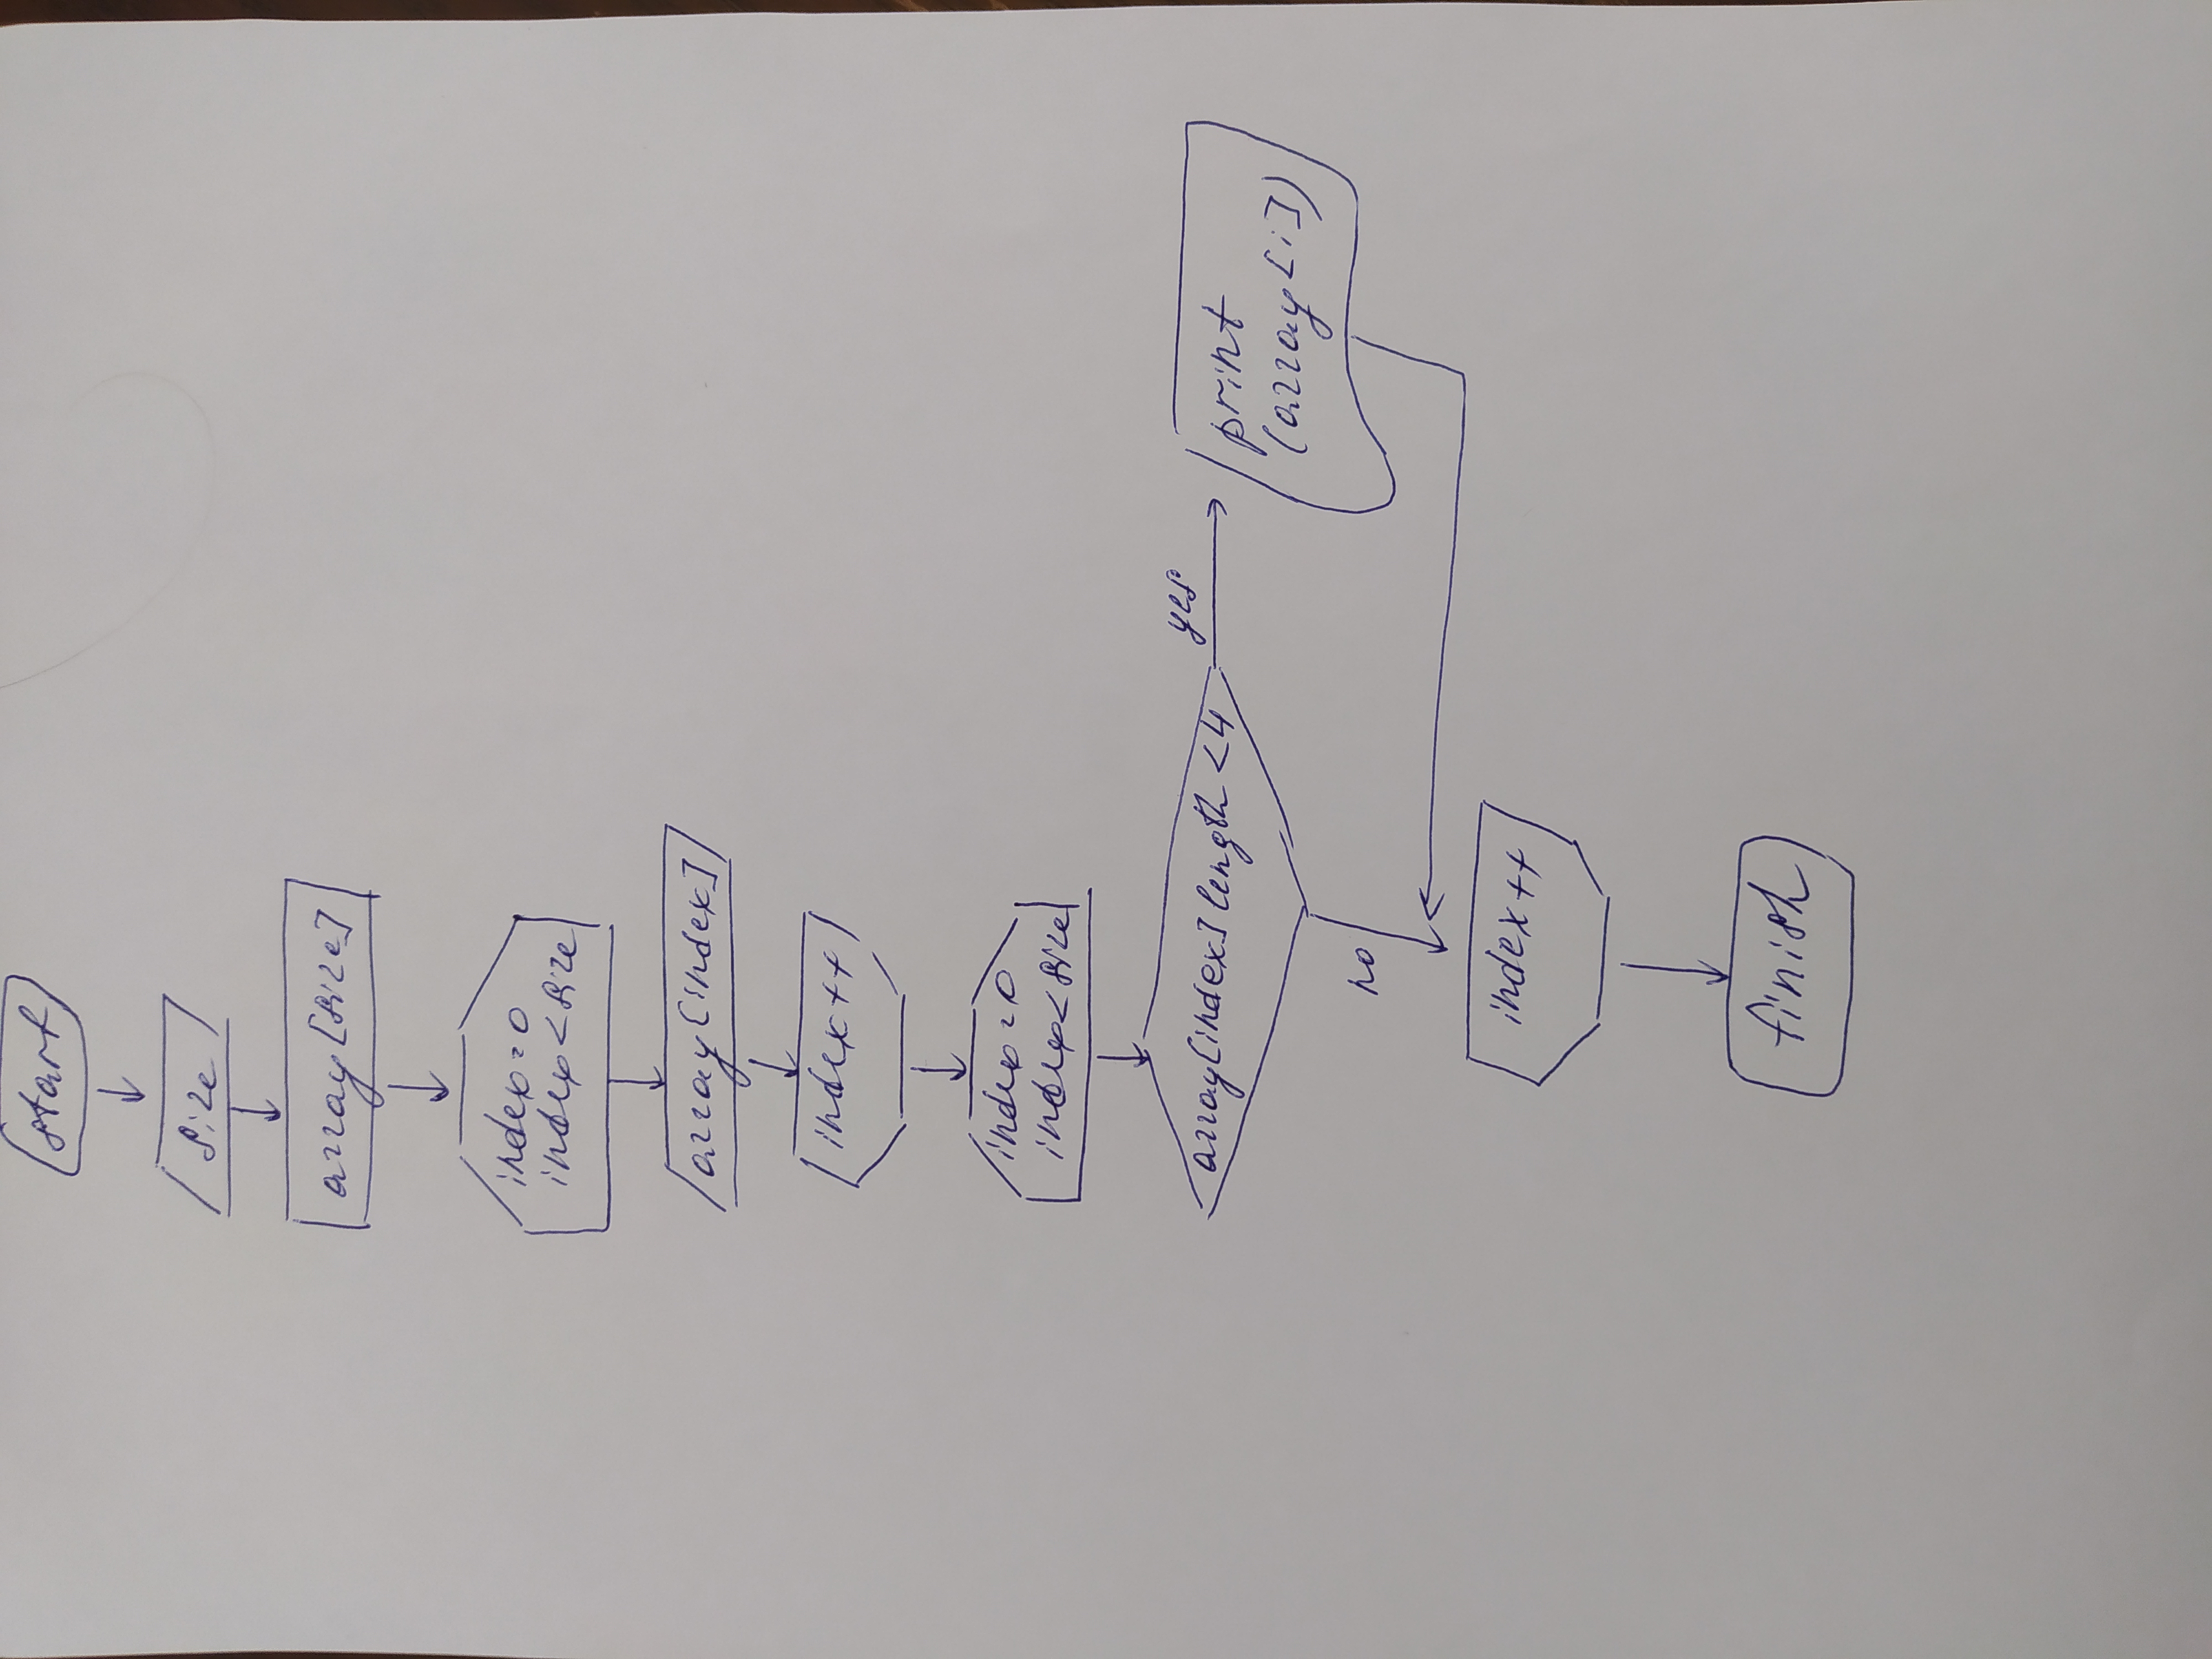 start
size
array[size]
index=0
index<size
array[index]
index++
index=0
index<size
array[index] length <4
yes
print
(array[i])
no
index++
finish